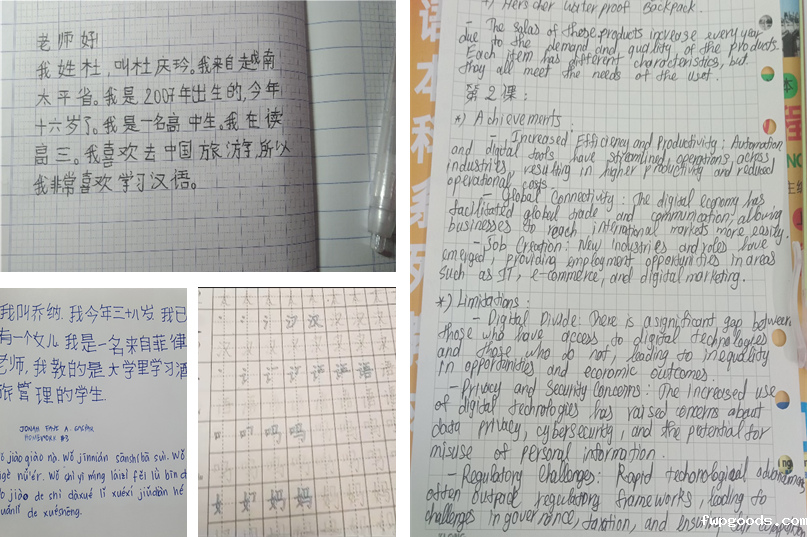 老师好!
我姓杜,叫杜庆玲。我来自越南
太平省。我是2007年出生的,今年
十六岁了。我是一名高中生。我在读
高三。我喜欢去中国旅游,所以
我非常喜欢学习汉语。
我叫乔纳. 我今年三十八岁 我已
有一个女儿 我是一名来自菲律
老师, 我教的是大学里学习酒
管理的学生.
HOMEWORK #3
jiào qiáo nà. Wǒ jīnnián sānshíbā suì. Wǒ
nǚ'ér. Wǒ shì yì míng láizì fēi lǜ bīn
jiāo de shì dàxué lǐ xuéxí jiǔdiàn
de xuéshēng.
汉 汉
语 语
吗 吗
女 妈 妈
*) Herscher waterproof Backpack.
- The salas of these products increase every year
due to the demand and quality of the products.
Each item has different characteristics, but
they all meet the needs of the user.
第2课:
*) Achievements:
- Increased Efficiency and Productivity: Automation
and digital tools have streamlined operations across
industries resulting in higher productivity and reduced
operational costs.
- Global Connectivity: The digital economy has
facilitated global trade and communication, allowing
businesses to reach international markets more easily.
- Job Creation: New industries and roles have
emerged, providing employment opportunities in areas
such as IT, e-commerce, and digital marketing.
*) Limitations:
- Digital Divide: There is a significant gap between
those who have access to digital technologies
and those who do not, leading to inequality
in opportunities and economic outcomes.
- Privacy and Security Concerns: The increased use
of digital technologies has raised concerns about
data privacy, cybersecurity, and the potential for
misuse of personal information.
- Regulatory Challenges: Rapid technological
often outpace regulatory frameworks, leading to
challenges in governance, taxation, and ensuring
语本科系列
fwpgoods.com